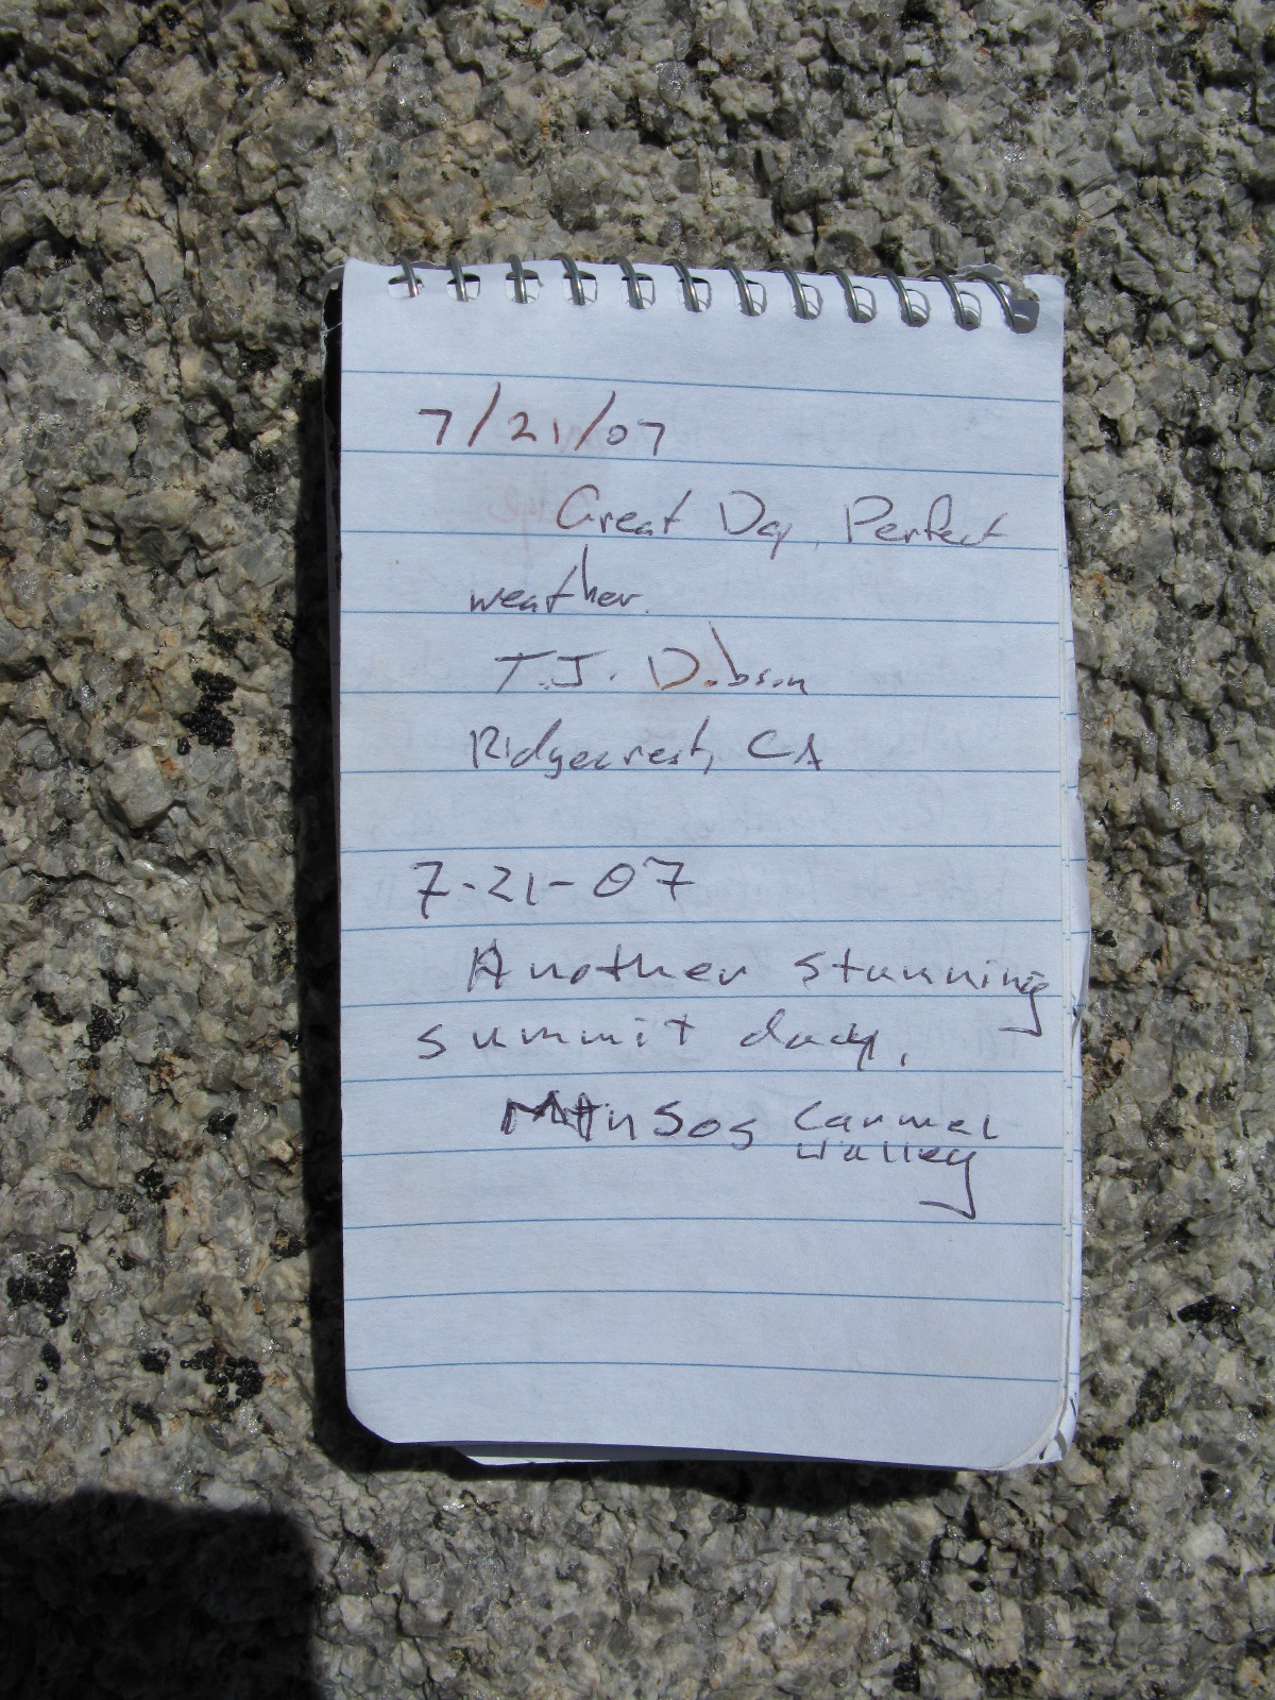 7/21/07
Great Day, Perfect
weather.
T.J. Dobson
Ridgecrest, CA
7-21-07
Another stunning
summit day.
Carmel
Valley